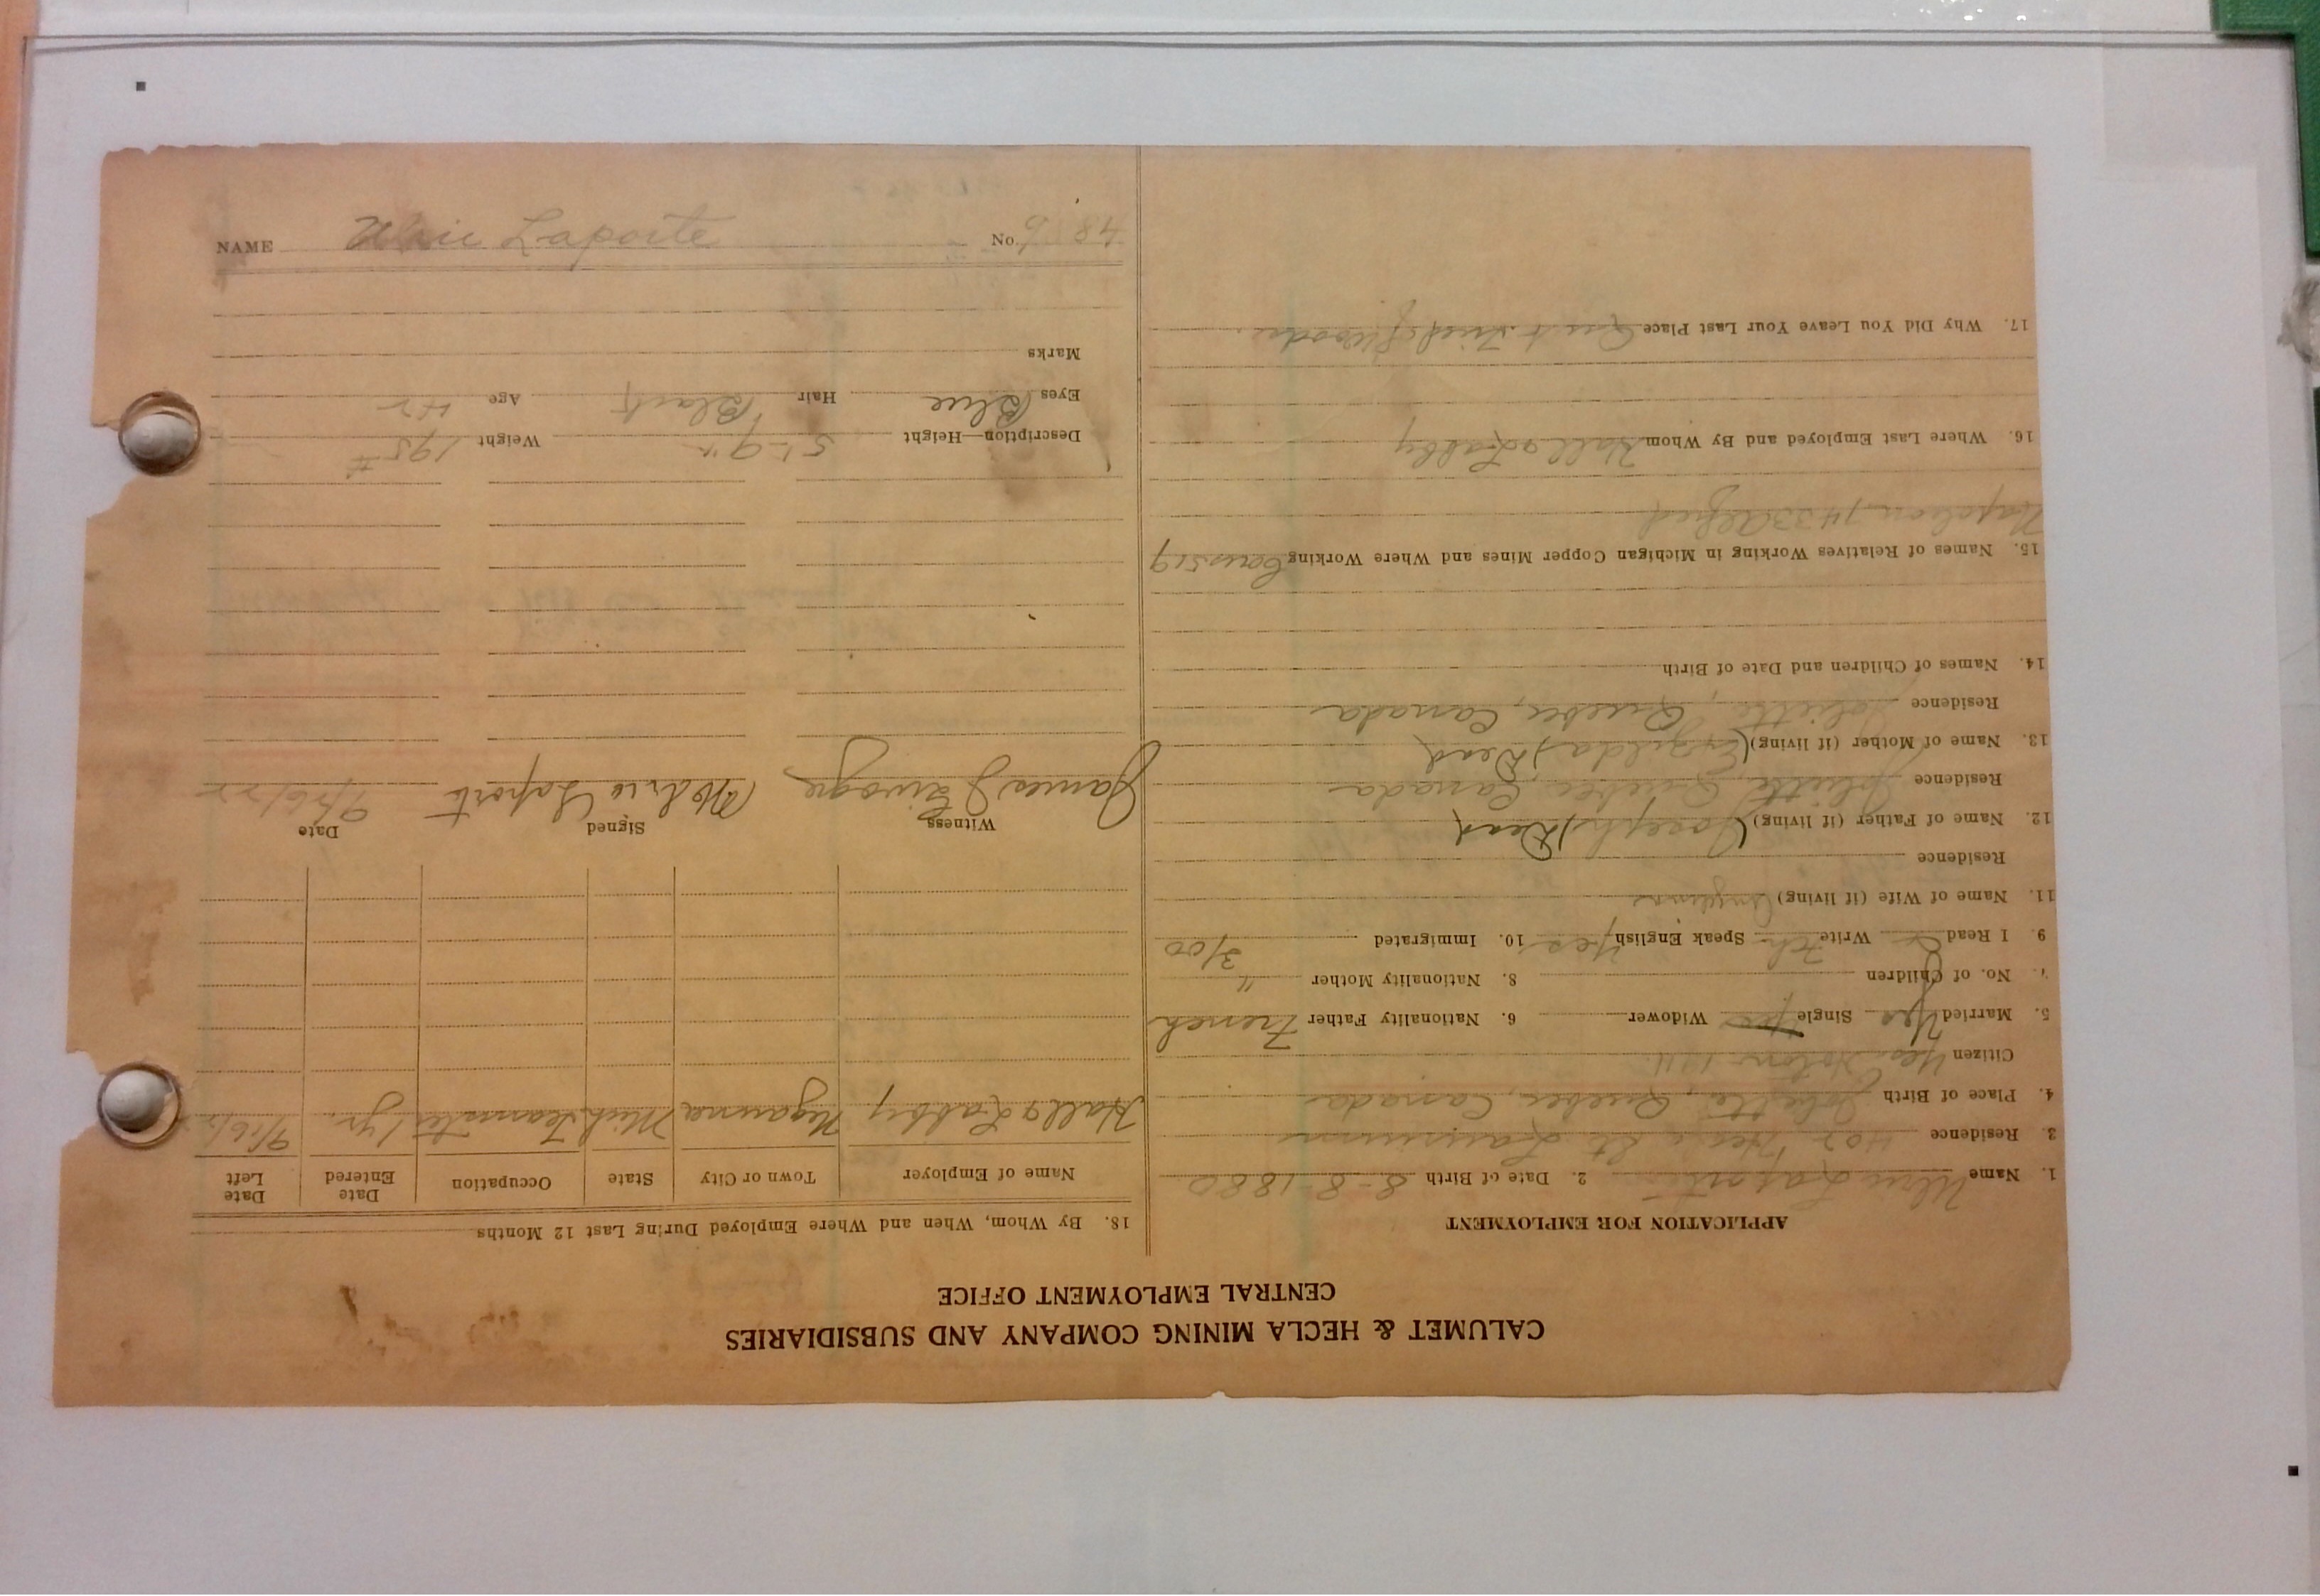 CALUMET & HECLA MINING COMPANY AND SUBSIDIARIES
CENTRAL EMPLOYMENT OFFICE
APPLICATION FOR EMPLOYMENT
1. Name Ulric Laporte 2. Date of Birth 8-8-1880
3. Residence 405 Hecla St Laurium
4. Place of Birth Joliette, Quebec, Canada
Citizen Yes
5. Married Yes Single Widower 6. Nationality Father French
7. No. of Children 8. Nationality Mother "
9. I Read Write Speak English Yes 10. Immigrated 3/00
11. Name of Wife (if living)
Residence
12. Name of Father (if living) (Joseph) Dead
Residence Joliette, Quebec, Canada
13. Name of Mother (if living) Dead
Residence Joliette, Quebec, Canada
14. Names of Children and Date of Birth
15. Names of Relatives Working in Michigan Copper Mines and Where Working
Napoleon, Alfred
16. Where Last Employed and By Whom Hall & Labby
17. Why Did You Leave Your Last Place Quit
18. By Whom, When and Where Employed During Last 12 Months
Name of Employer Town or City State Occupation Date Entered Date Left
Hall & Labby Negaunee Mich Teamster 1 yr.
Witness Signed Date
James 9/26/22
Description—Height 5'-9" Weight 195 #
Eyes Blue Hair Black Age 42
Marks
NAME Ulric Laporte No.